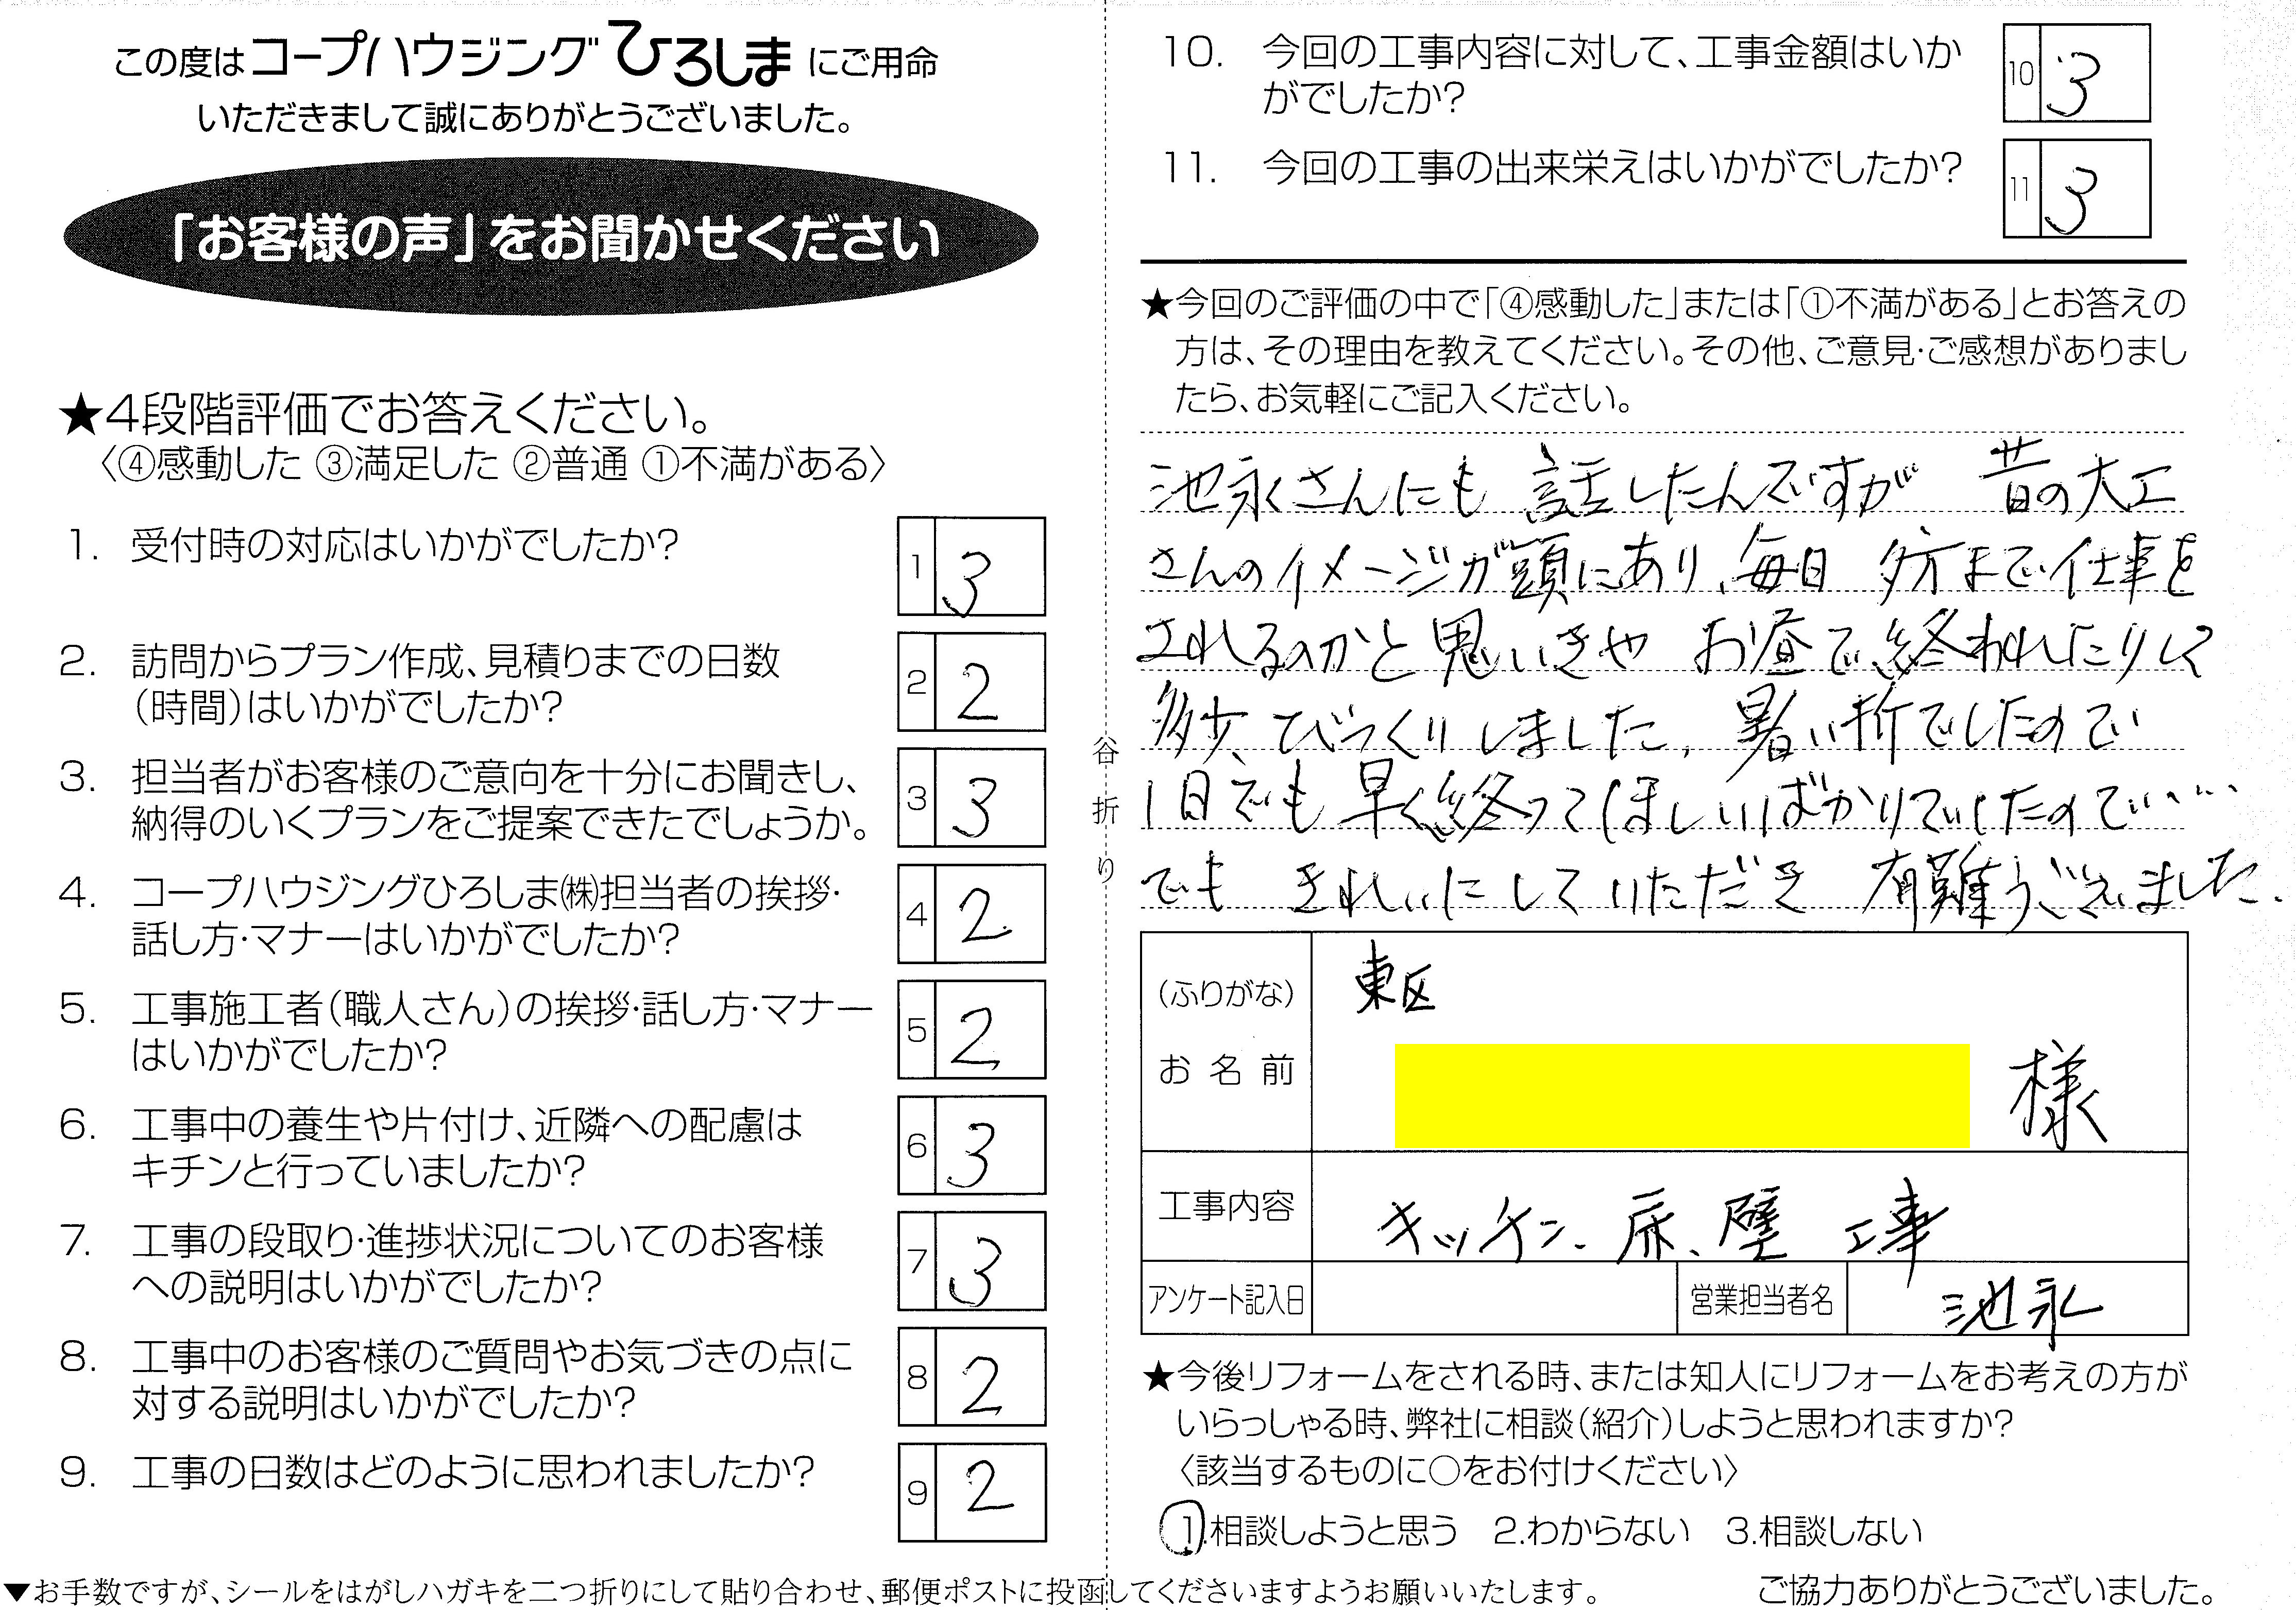 この度はコープハウジングひろしまにご用命
いただきまして誠にありがとうございました。
「お客様の声」をお聞かせください
★4段階評価でお答えください。
〈④感動した ③満足した ②普通 ①不満がある〉
1. 受付時の対応はいかがでしたか?
1 3
2. 訪問からプラン作成、見積りまでの日数
(時間)はいかがでしたか?
2 2
3. 担当者がお客様のご意向を十分にお聞きし、
納得のいくプランをご提案できたでしょうか。
3 3
4. コープハウジングひろしま㈱担当者の挨拶・
話し方・マナーはいかがでしたか?
4 2
5. 工事施工者(職人さん)の挨拶・話し方・マナー
はいかがでしたか?
5 2
6. 工事中の養生や片付け、近隣への配慮は
キチンと行っていましたか?
6 3
7. 工事の段取り・進捗状況についてのお客様
への説明はいかがでしたか?
7 3
8. 工事中のお客様のご質問やお気づきの点に
対する説明はいかがでしたか?
8 2
9. 工事の日数はどのように思われましたか?
9 2
谷折り
10. 今回の工事内容に対して、工事金額はいか
がでしたか?
10 3
11. 今回の工事の出来栄えはいかがでしたか?
11 3
★今回のご評価の中で「④感動した」または「①不満がある」とお答えの
方は、その理由を教えてください。その他、ご意見・ご感想がありまし
たら、お気軽にご記入ください。
池永さんにも 話したんですが 昔の大工
さんのイメージが頭にあり、毎日 夕方まで仕事を
されるのかと思いきや お昼で終われたりして
多少、びっくりしました。暑い折でしたので
1日でも早く終ってほしいばかりでしたので……
でも きれいにしていただき 有難うございました。
(ふりがな)
お名前
東区
様
工事内容 キッチン、床、壁 工事
アンケート記入日 営業担当者名 池永
★今後リフォームをされる時、または知人にリフォームをお考えの方が
いらっしゃる時、弊社に相談(紹介)しようと思われますか?
〈該当するものに○をお付けください〉
1.相談しようと思う 2.わからない 3.相談しない
▼お手数ですが、シールをはがしハガキを二つ折りにして貼り合わせ、郵便ポストに投函してくださいますようお願いいたします。 ご協力ありがとうございました。